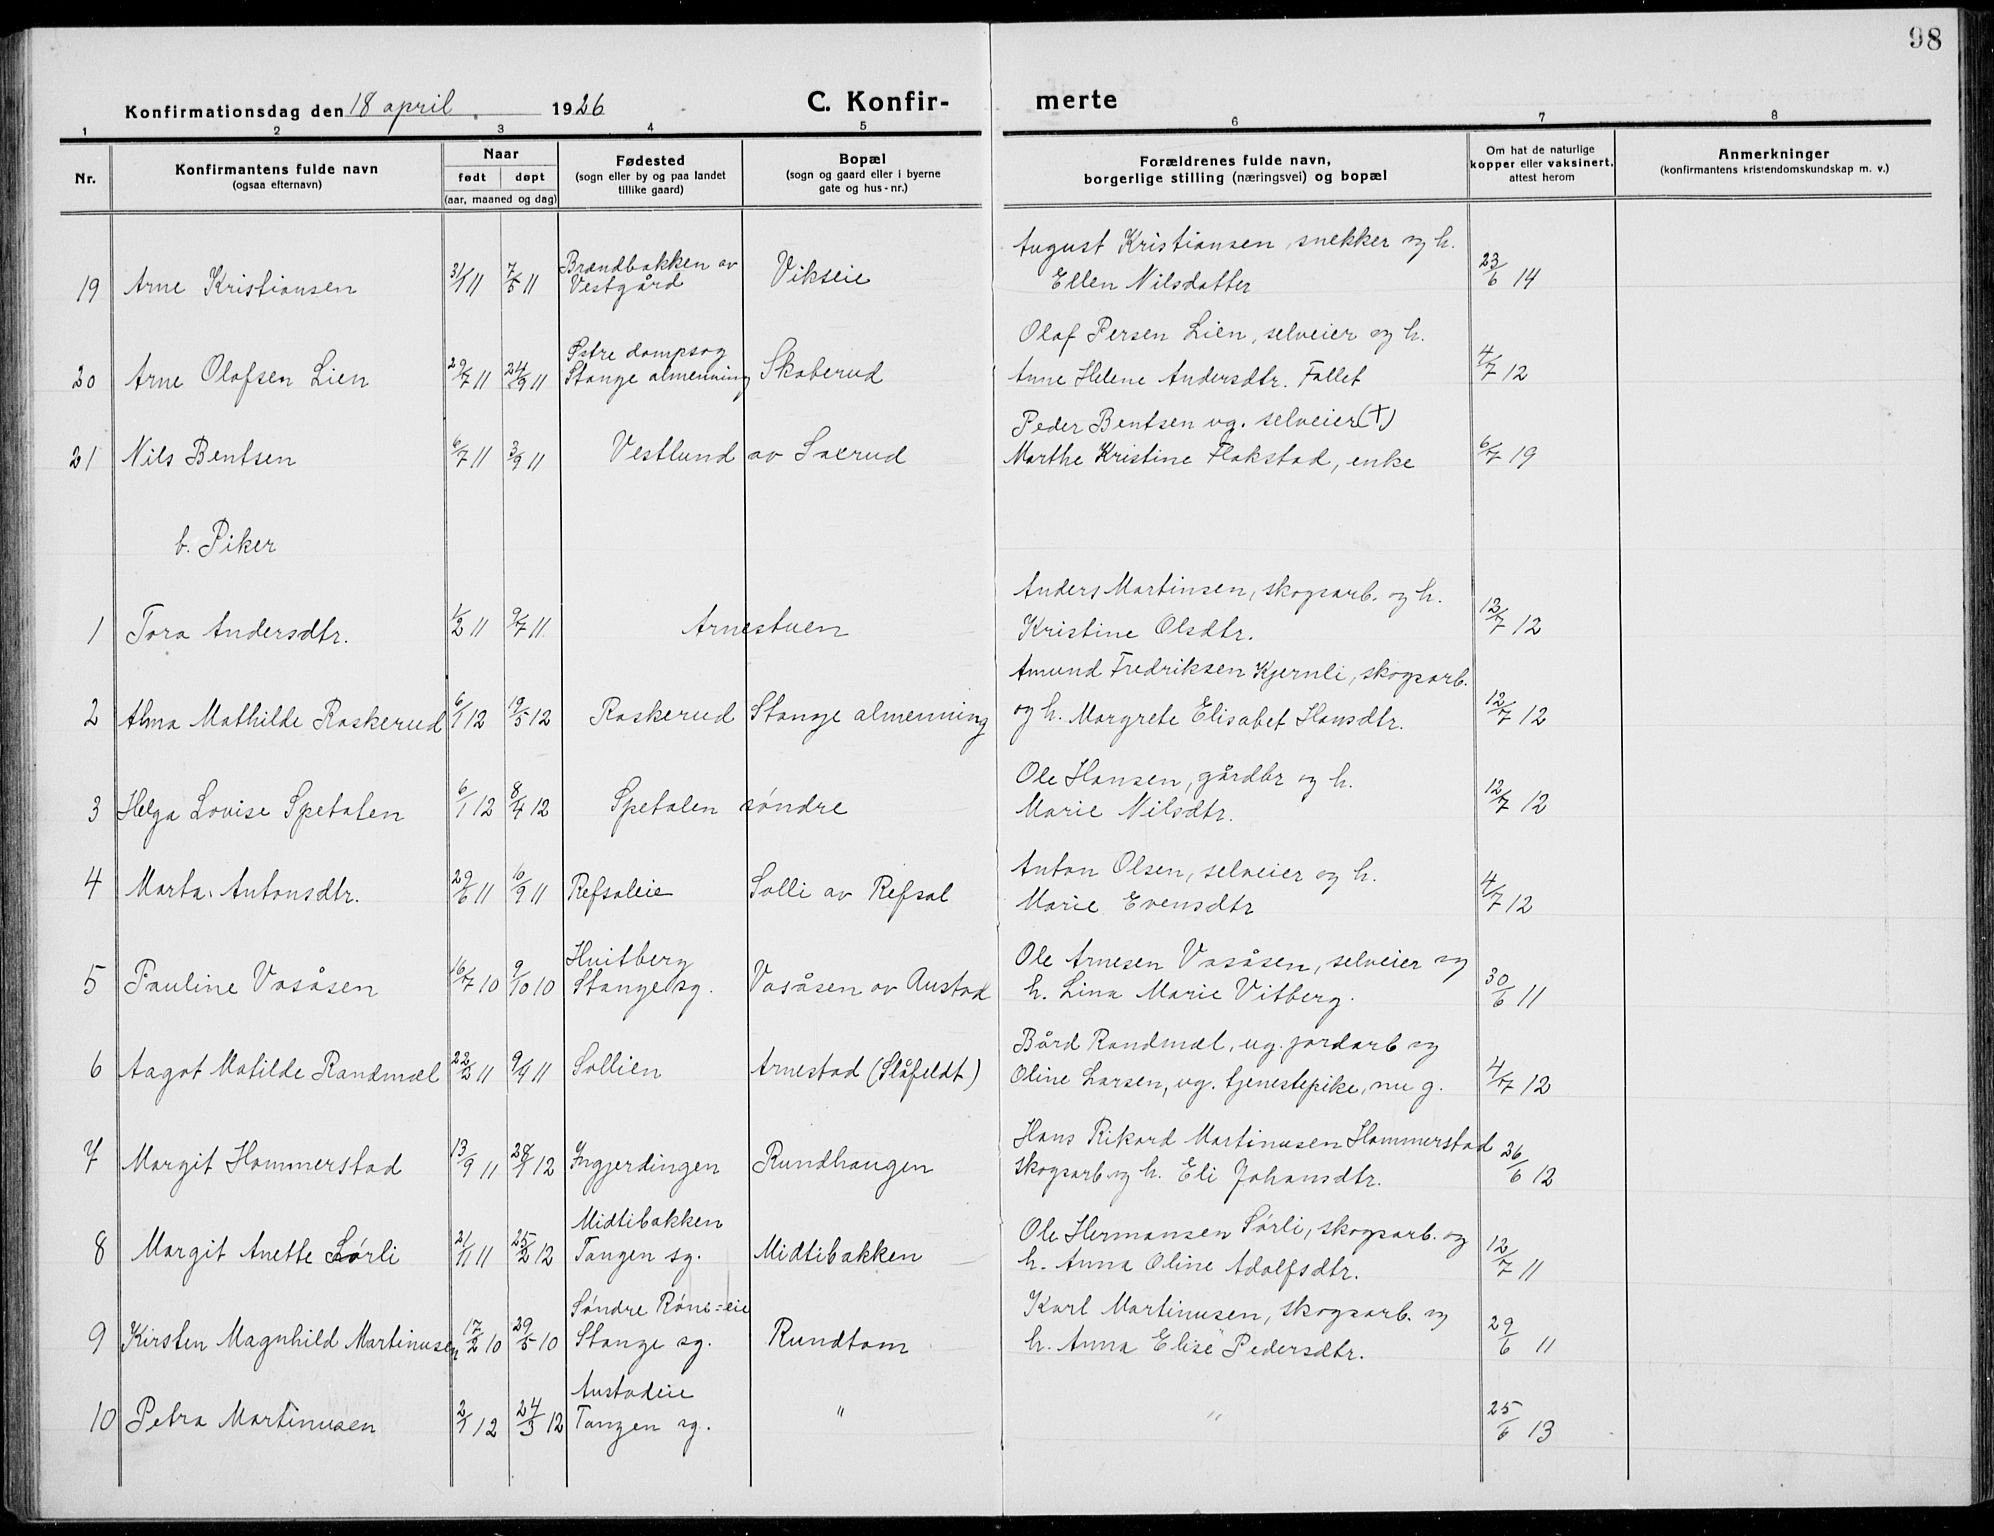 98
Konfirmationsdag den 18 april 1926 C. Konfir- merte
1 2 3 4 5 6 7 8
Nr. Konfirmantens fulde navn (ogsaa efternavn) Naar født døpt (aar, maaned og dag) Fødested (sogn eller by og paa landet tillike gaard) Bopæl (sogn og gaard eller i byerne gate og hus-nr.) Forældrenes fulde navn, borgerlige stilling (næringsvei) og bopæl Om hat de naturlige kopper eller vaksinert, attest herom Anmerkninger (konfirmantens kristendomskundskap m. v.)
Brændbakken av August Kristiansen, snekker og h.
19 Arne Kristiansen 11 7/5 11 Vestgård Vikseie Ellen Nilsdatter 23/6 14
Østre dampsag Olaf Persen Lien, selveier og h.
20 Arne Olafsen Lien 29/7 11 24/9 11 Stange almenning Skaberud Anne Helene Andersdtr. Fallet 4/7 12
Peder Bentsen ug. selveier (†)
21 Nils Bentsen 6/7 11 3/9 11 Vestlund av Saxrud Marthe Kristine Flakstad, enke 6/7 19
b. Piker
Anders Martinsen, skogsarb. og h.
1 Tora Andersdtr. 1/2 11 9/7 11 Arnestuen Kristine Olsdtr. 12/7 12
Amund Fredriksen Kjernli, skogsarb.
2 Alma Mathilde Raskerud 6/1 12 19/5 12 Raskerud Stange almenning og h. Margrete Elisabet Hansdtr. 12/7 12
Ole Hansen, gårdbr og h.
3 Helga Lovise Spetalen 6/1 12 8/4 12 Spetalen søndre Marie Nilsdtr. 12/7 12
Anton Olsen, selveier og h.
4 Marta Antonsdtr. 29/6 11 10/9 11 Refsaleie Solli av Refsal Marie Evensdtr 4/7 12
Hvitberg Ole Arnesen Vasåsen, selveier og
5 Pauline Vasåsen 16/7 10 9/10 10 Stange sg. Vasåsen av Austad h. Lina Marie Vitberg. 30/6 11
Bård Randmæl, ug. jordarb og
6 Aagot Matilde Randmæl 22/2 11 9/4 11 Sollien Arnestad (Slåfeldt) Oline Larsen, ug. tjenestepike, nu g. 4/7 12
Hans Rikard Martinusen Hammerstad
7 Margit Hammerstad 13/9 11 28/1 12 Ingjerdingen Rundhaugen skogsarb og h. Eli Johansdtr. 26/6 12
Midtibakken Ole Hermansen Sørli, skogsarb. og
8 Margit Anette Sørli 21/11 11 25/2 12 Tangen sg. Midtibakken h. Anna Oline Adolfsdtr. 12/7 11
Søndre Røne=eie Karl Martinusen, skogsarb. og
9 Kirsten Magnhild Martinusen 17/2 10 29/5 10 Stange sg. Rundtom h. Anna Elise Pedersdtr. 29/6 11
Austadeie
10 Petra Martinusen 2/1 12 24/3 12 Tangen sg. " " 25/6 13